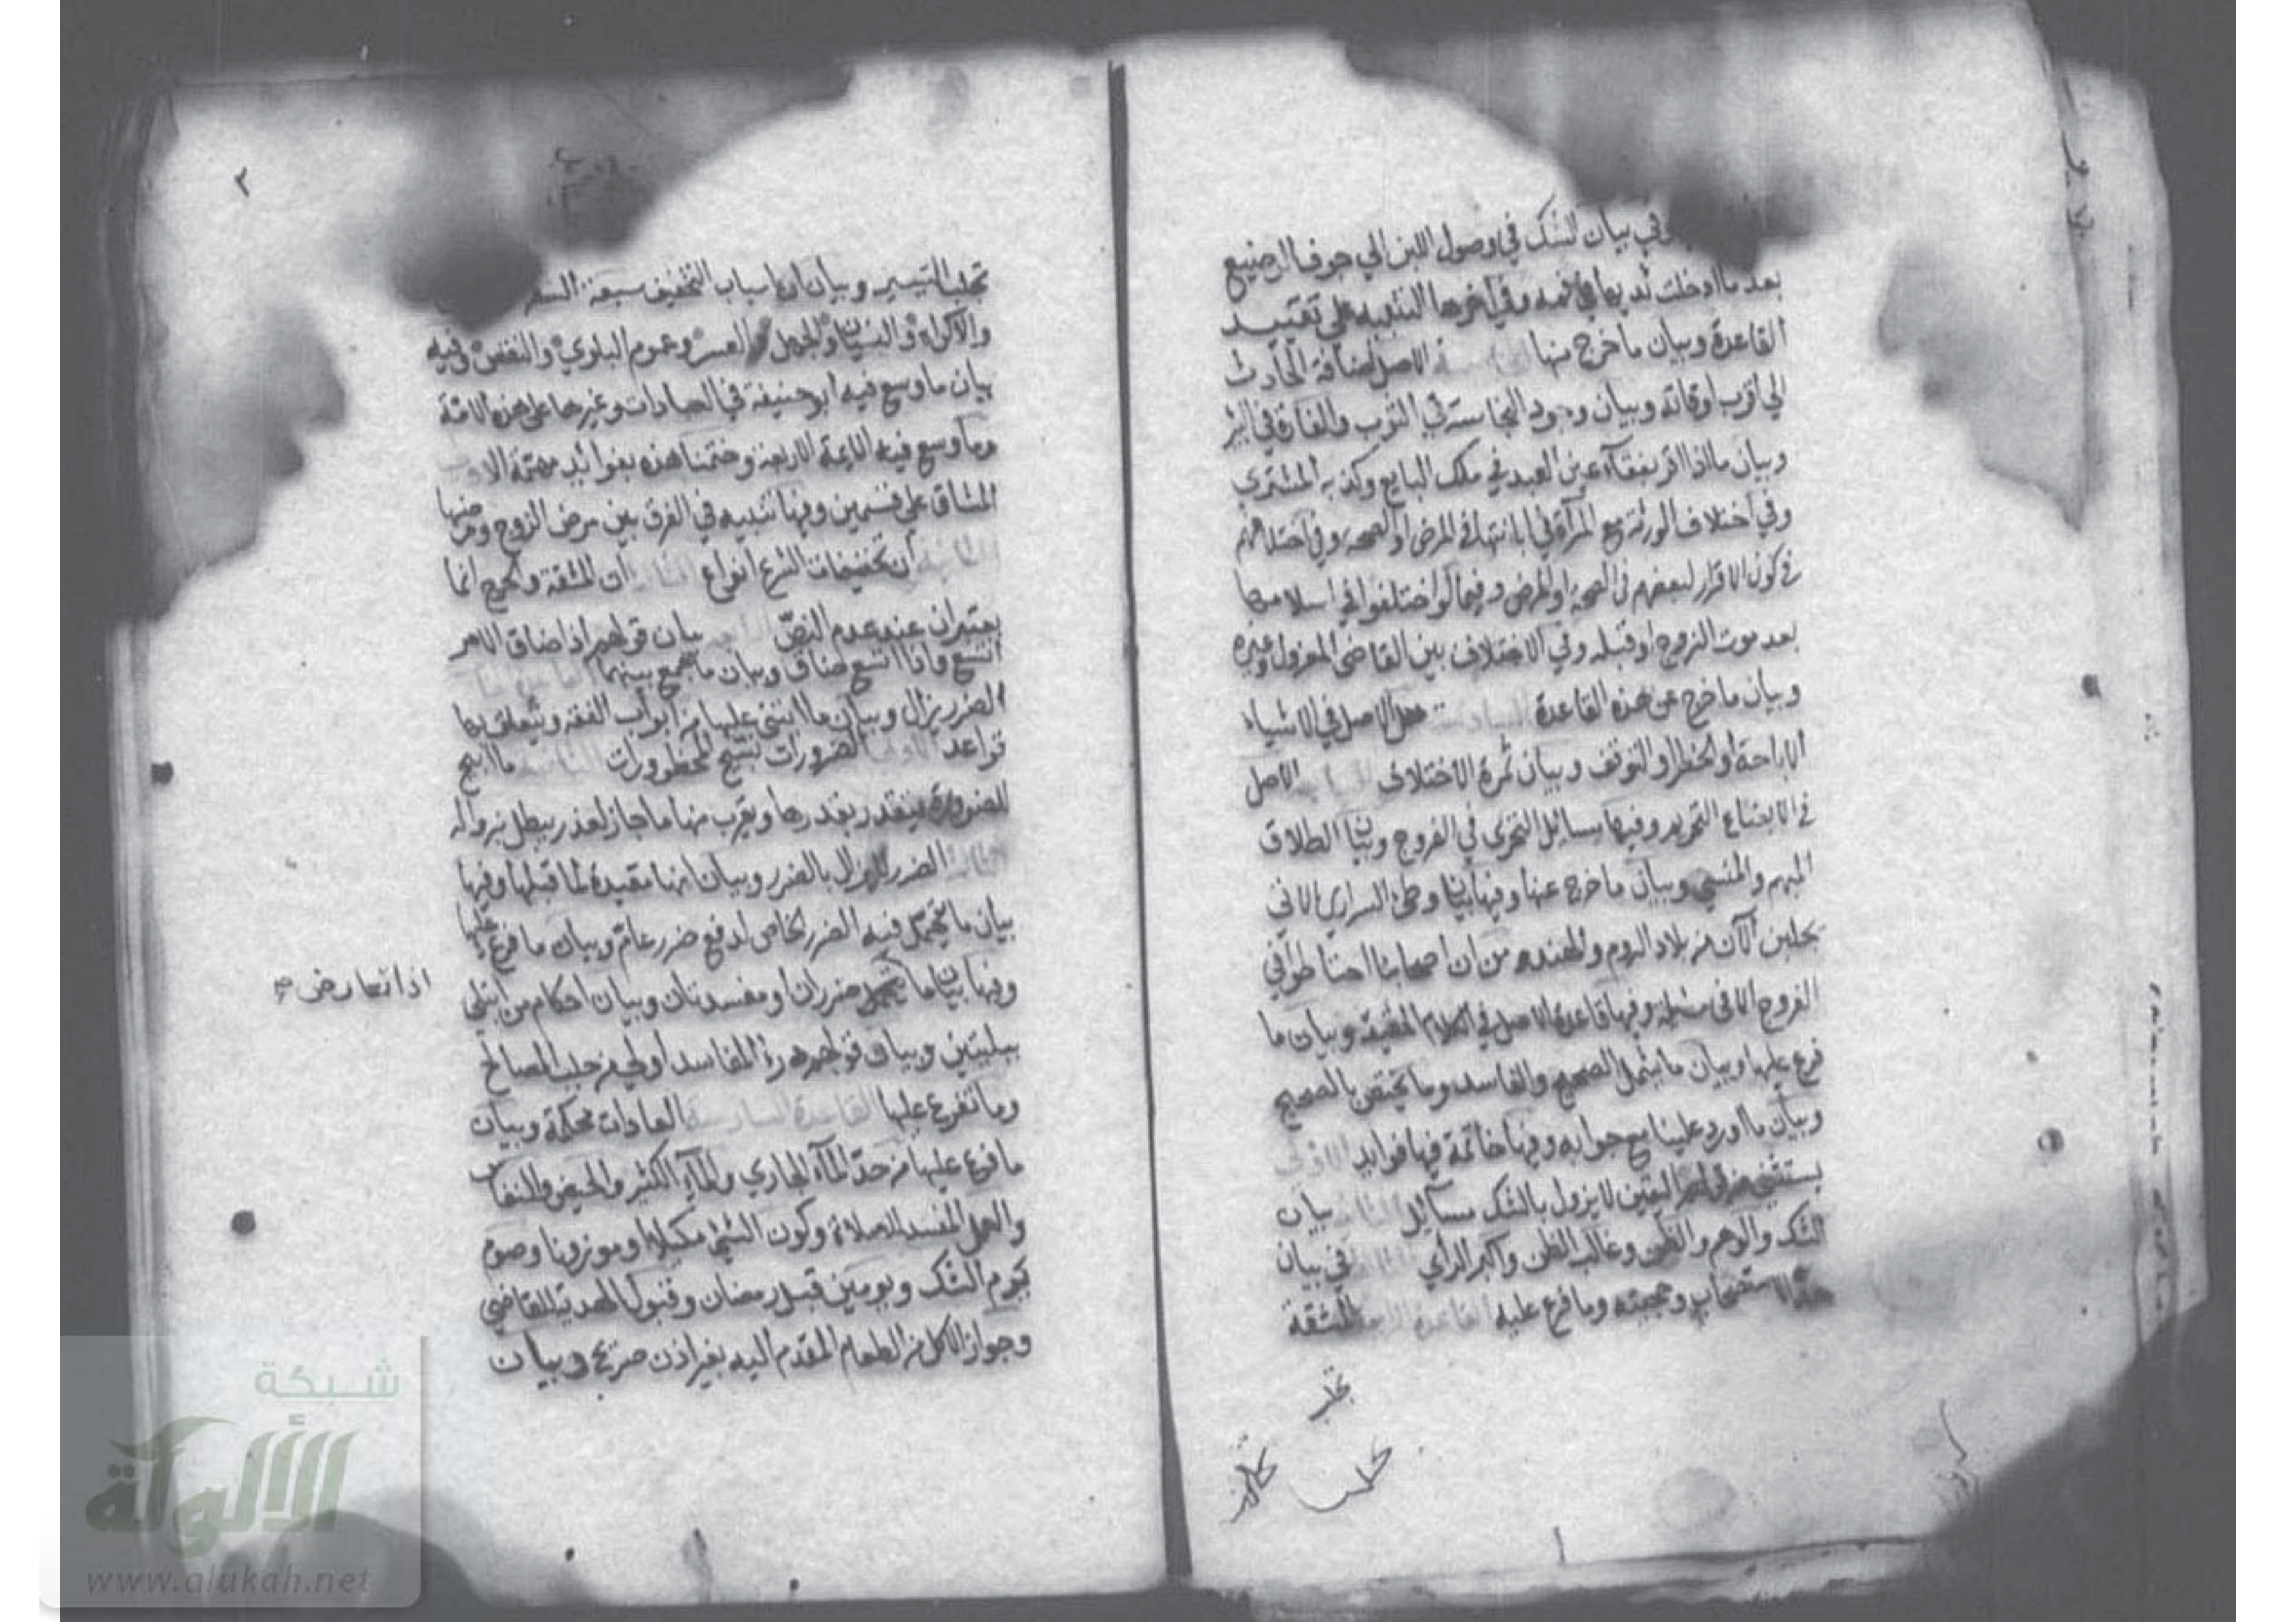 وفي بيان الشك في وصول اللبن الي جوف الرضيع
بعد ما ادخلت ثديها في فمه وفي اخرها التنبيه علي تقييد
القاعدة وبيان ما خرج منها الاصل اضافة الحادث
الي اقرب اوقاته وبيان وجود النجاسة في الثوب والفارة في البئر
وبيان ما اذا اقر بفقاء عين العبد في ملك البايع وكذبه المشتري
وفي اختلاف الورثة مع المرأة في ابانتها في المرض او الصحة وفي اختلافهم
في كون الاقرار لبعضهم في الصحة او المرض وفيما لو اختلفوا في اسلامها
بعد موت الزوج او قبله وفي الاختلاف بين القاضي المعزول وغيره
وبيان ما خرج عن هذه القاعدة السادسة هل الاصل في الاشياء
الاباحة او الحظر او التوقف وبيان ثمرة الاختلاف الاصل
في الابضاع التحريم وفيها مسائل التحري في الفروج وبيان الطلاق
المبهم والمنسي وبيان ما خرج عنها وفيها بيان وطئ السراري الاتي
يجلبن الآن من بلاد الروم والهند من ان اصحابنا احتاطوا في
الفروج الا في مسئلة وفيها قاعدة الاصل في الكلام الحقيقة وبيان ما
فرع عليها وبيان ما يشمل الصحيح والفاسد وما يختص بالصحيح
وبيان ما اورد علينا مع جوابه وفيها خاتمة فيها فوايد الاولي
يستثني من قولهم اليقين لا يزول بالشك مسائل الثانية بيان
الشك والوهم والظن وغالب الظن واكبر الرأي الثالثة في بيان
حد الاستصحاب وحجيته وما فرع عليه القاعدة الرابعة المشقة
تجلب
٢
تجلب التيسير وبيان ان اسباب التخفيف سبعة السفر
والاكراه والنسيان والجهل والعسر وعموم البلوي والنقص وفيه
بيان ما وسع فيه ابو حنيفة في العبادات وغيرها علي هذه الامة
وما وسع فيه الايمة الاربعة وختمنا هذه بفوائد مهمة
المشاق علي قسمين وفيها تنبيه في الفرق بين مرض الزوج ومرضها
الثانية ان تخفيفات الشرع انواع ان المشقة والحرج انما
يعتبران عند عدم النص بيان قولهم اذا ضاق الامر
اتسع واذا اتسع ضاق وبيان ما جمع بينهما
الضرر يزال وبيان ما ابتني عليها من ابواب الفقه ويتعلق بها
قواعد الاولي الضرورات تبيح المحظورات الثانية ما ابيح
للضرورة يتقدر بقدرها ويقرب منها ما جاز لعذر يبطل بزواله
الضرر لا يزال بالضرر وبيان انها مقيدة لما قبلها وفيها
بيان ما يتحمل فيه الضرر الخاص لدفع ضرر عام وبيان ما فرع عليها
وفيها بيان ما تحمل ضرران او مفسدتان وبيان احكام من ابتلي
اذا تعارض صح
ببليتين وبيان قولهم درء المفاسد اولي من جلب المصالح
وما تفرع عليها القاعدة السادسة العادات محكمة وبيان
ما فرع عليها من حد الماء الجاري والماء الكثير والحيض والنفاس
والعمل المفسد للصلاة وكون الشئ مكيلا او موزونا وصوم
يوم الشك ويومين قبل رمضان وقبول الهدية للقاضي
وجواز الاكل من الطعام المقدم اليه بغير اذن صريح وبيان
شبكة
الألوكة
www.alukah.net